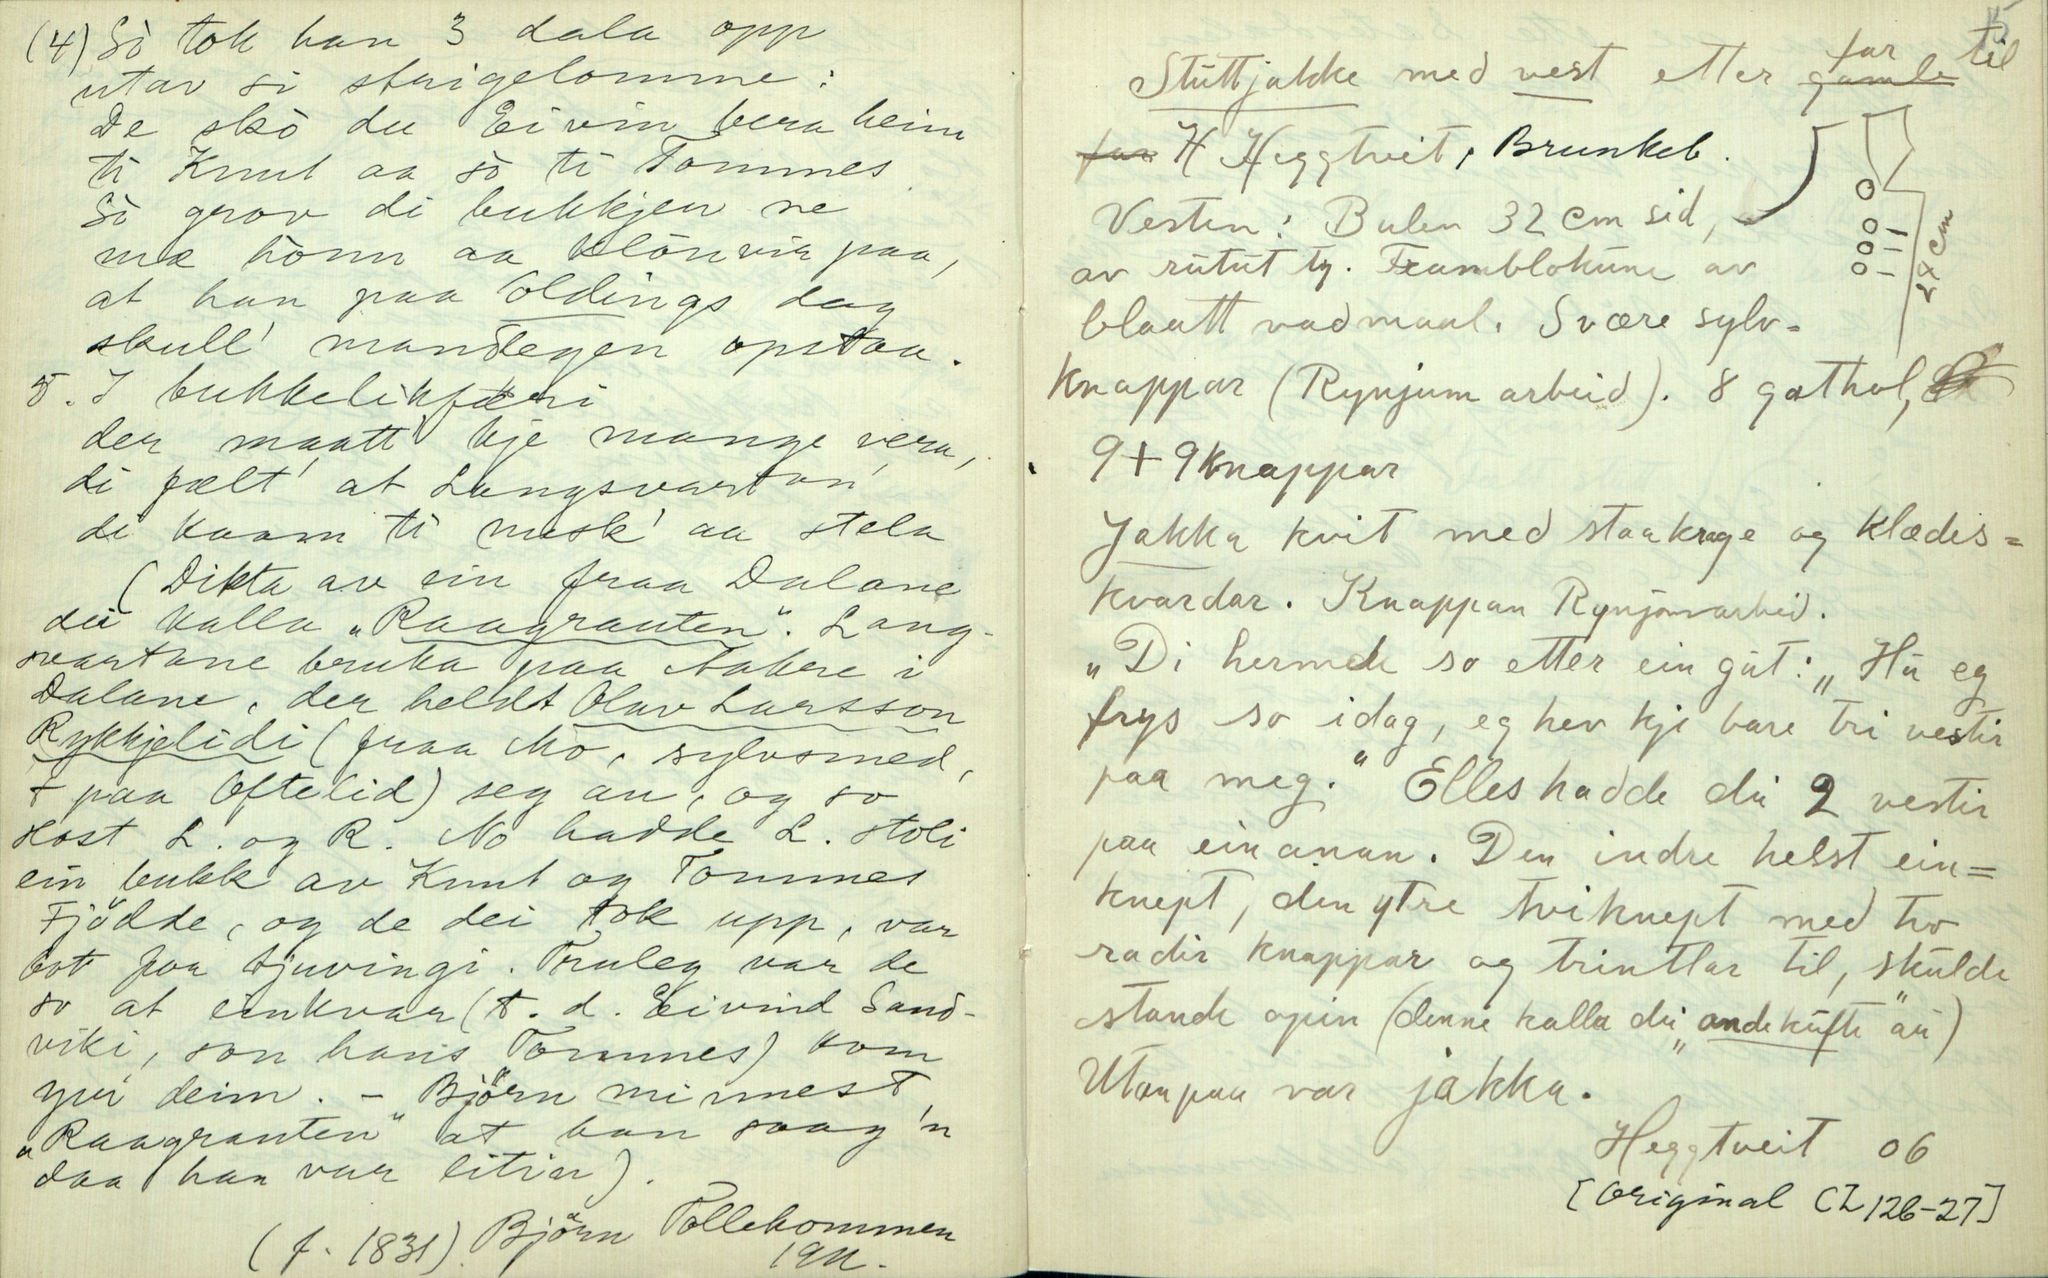 (4) Sò tok han 3 dala opp
utav si stuigelomme:
De skò du Eivin bera heim
ti Knut aa sò ti Tommes
Sò grov di bukkjen ne
mæ hònn aa klònvir paa,
at han paa Oldings dag
skull' mandegen opstaa.
5. I bukkelikfæri
der maatt' kje mange vera,
di fælt' at Langsvartan'
di kaam ti musk' aa stela
(Dikta av ein fraa Dalane
dei kalla „Raagrauten". Lang-
svartane bruka paa Nakre i
Dalane, der heldt Olav Larsson
Rykkjelidi (fraa Mo, sylvsmed,
+ paa Oftelid) seg an, og so
slost L. og R. No hadde L. stoli
ein bukk av Knut og Tommes
Fjödde, og de dei tok upp, var
bot for tjuvingi. Truleg var de
so at einkvar (t. d. Eivind Sand-
viki, son hans Tommes) kom
yvi deim. – Björn minnest
„Raagrauten" at han saag 'n
daa han var litin).
(f. 1831). Björn Tollekommen
1911.
15
Stuttjakke med vest etter gamle far til
far H Heggtveit, Brunkeb.
Vesten: Bulen 32 cm sid,
24 cm
av rutut ty. Framblokune av
blaatt vadmaal. Svære sylv-
knappar (Rynjum arbeid). 8 gathol,
9 + 9 knappar
Jakka kvit med staakrage og klædis-
kvardar. Knappan Rynjomarbeid.
„Di hermde so etter ein gut: „Hu eg
frys so idag, eg hev kje bare tri vestir
paa meg." Elles hadde dei 2 vestir
paa einanan. Den indre helst ein-
knept, den ytre tviknept med tvo
radir knappar og trintlar til, skulde
stande opin (denne kalla dei „andekufte" au)
Utanpaa var jakka.
Heggtveit 06
[Original CL 126-27]